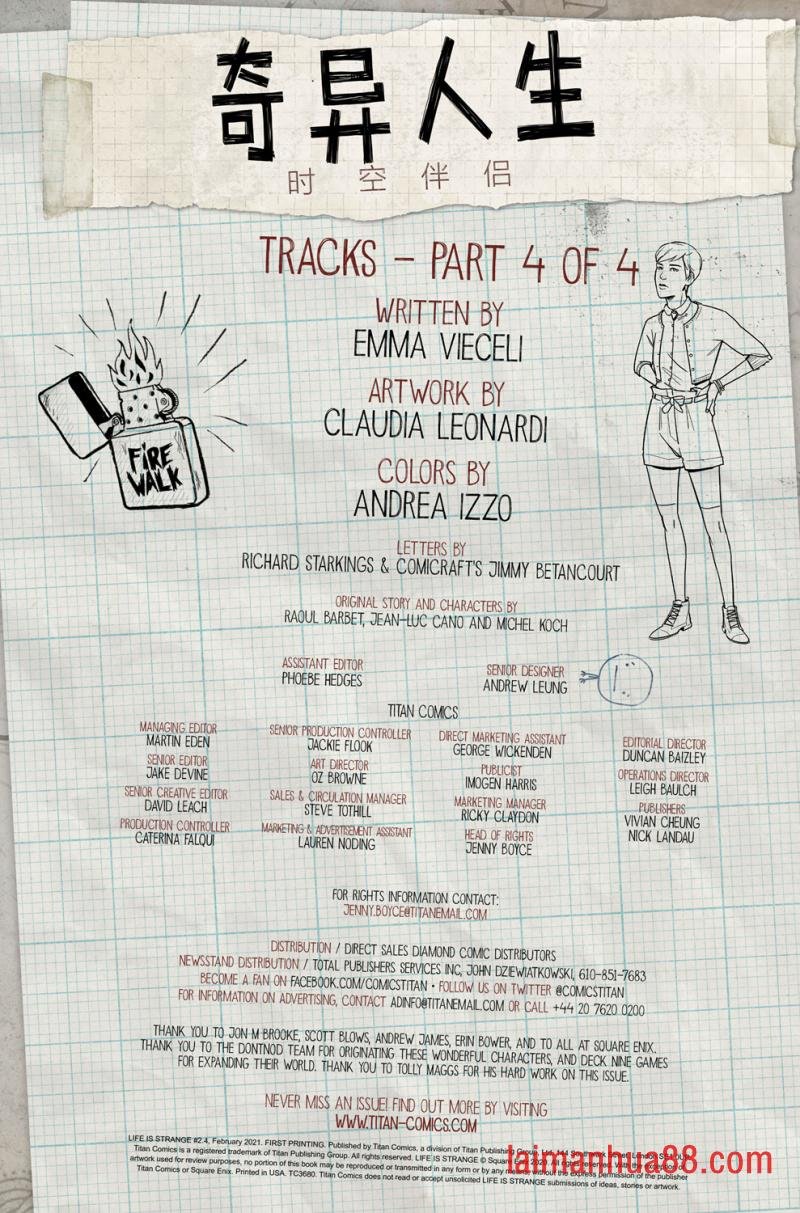 奇异人生
时空伴侣
TRACKS – PART 4 OF 4
WRITTEN BY
EMMA VIECELI
ARTWORK BY
CLAUDIA LEONARDI
COLORS BY
ANDREA IZZO
FIRE
WALK
LETTERS BY
RICHARD STARKINGS & COMICRAFT'S JIMMY BETANCOURT
ORIGINAL STORY AND CHARACTERS BY
RAOUL BARBET, JEAN-LUC CANO AND MICHEL KOCH
ASSISTANT EDITOR
PHOEBE HEDGES
SENIOR DESIGNER
ANDREW LEUNG
TITAN COMICS
MANAGING EDITOR
MARTIN EDEN
SENIOR EDITOR
JAKE DEVINE
SENIOR CREATIVE EDITOR
DAVID LEACH
PRODUCTION CONTROLLER
CATERINA FALQUI
SENIOR PRODUCTION CONTROLLER
JACKIE FLOOK
ART DIRECTOR
OZ BROWNE
SALES & CIRCULATION MANAGER
STEVE TOTHILL
MARKETING & ADVERTISEMENT ASSISTANT
LAUREN NODING
DIRECT MARKETING ASSISTANT
GEORGE WICKENDEN
PUBLICIST
IMOGEN HARRIS
MARKETING MANAGER
RICKY CLAYDON
HEAD OF RIGHTS
JENNY BOYCE
EDITORIAL DIRECTOR
DUNCAN BAIZLEY
OPERATIONS DIRECTOR
LEIGH BAULCH
PUBLISHERS
VIVIAN CHEUNG
NICK LANDAU
FOR RIGHTS INFORMATION CONTACT:
JENNY.BOYCE@TITANEMAIL.COM
DISTRIBUTION / DIRECT SALES DIAMOND COMIC DISTRIBUTORS
NEWSSTAND DISTRIBUTION / TOTAL PUBLISHERS SERVICES INC, JOHN DZIEWIATKOWSKI, 610-851-7683
BECOME A FAN ON FACEBOOK.COM/COMICSTITAN • FOLLOW US ON TWITTER @COMICSTITAN
FOR INFORMATION ON ADVERTISING, CONTACT ADINFO@TITANEMAIL.COM OR CALL +44 20 7620 0200
THANK YOU TO JON M BROOKE, SCOTT BLOWS, ANDREW JAMES, ERIN BOWER, AND TO ALL AT SQUARE ENIX.
THANK YOU TO THE DONTNOD TEAM FOR ORIGINATING THESE WONDERFUL CHARACTERS, AND DECK NINE GAMES
FOR EXPANDING THEIR WORLD. THANK YOU TO TOLLY MAGGS FOR HIS HARD WORK ON THIS ISSUE.
NEVER MISS AN ISSUE! FIND OUT MORE BY VISITING
WWW.TITAN-COMICS.COM
LIFE IS STRANGE #2.4, February 2021. FIRST PRINTING. Published by Titan Comics, a division of Titan Publishing Group,
Titan Comics is a registered trademark of Titan Publishing Group. All rights reserved. LIFE IS STRANGE © Square
artwork used for review purposes, no portion of this book may be reproduced or transmitted in any form or by any means, without the express permission of the publisher
Titan Comics or Square Enix. Printed in USA. TC3680. Titan Comics does not read or accept unsolicited LIFE IS STRANGE submissions of ideas, stories or artwork.
laimanhua88.com